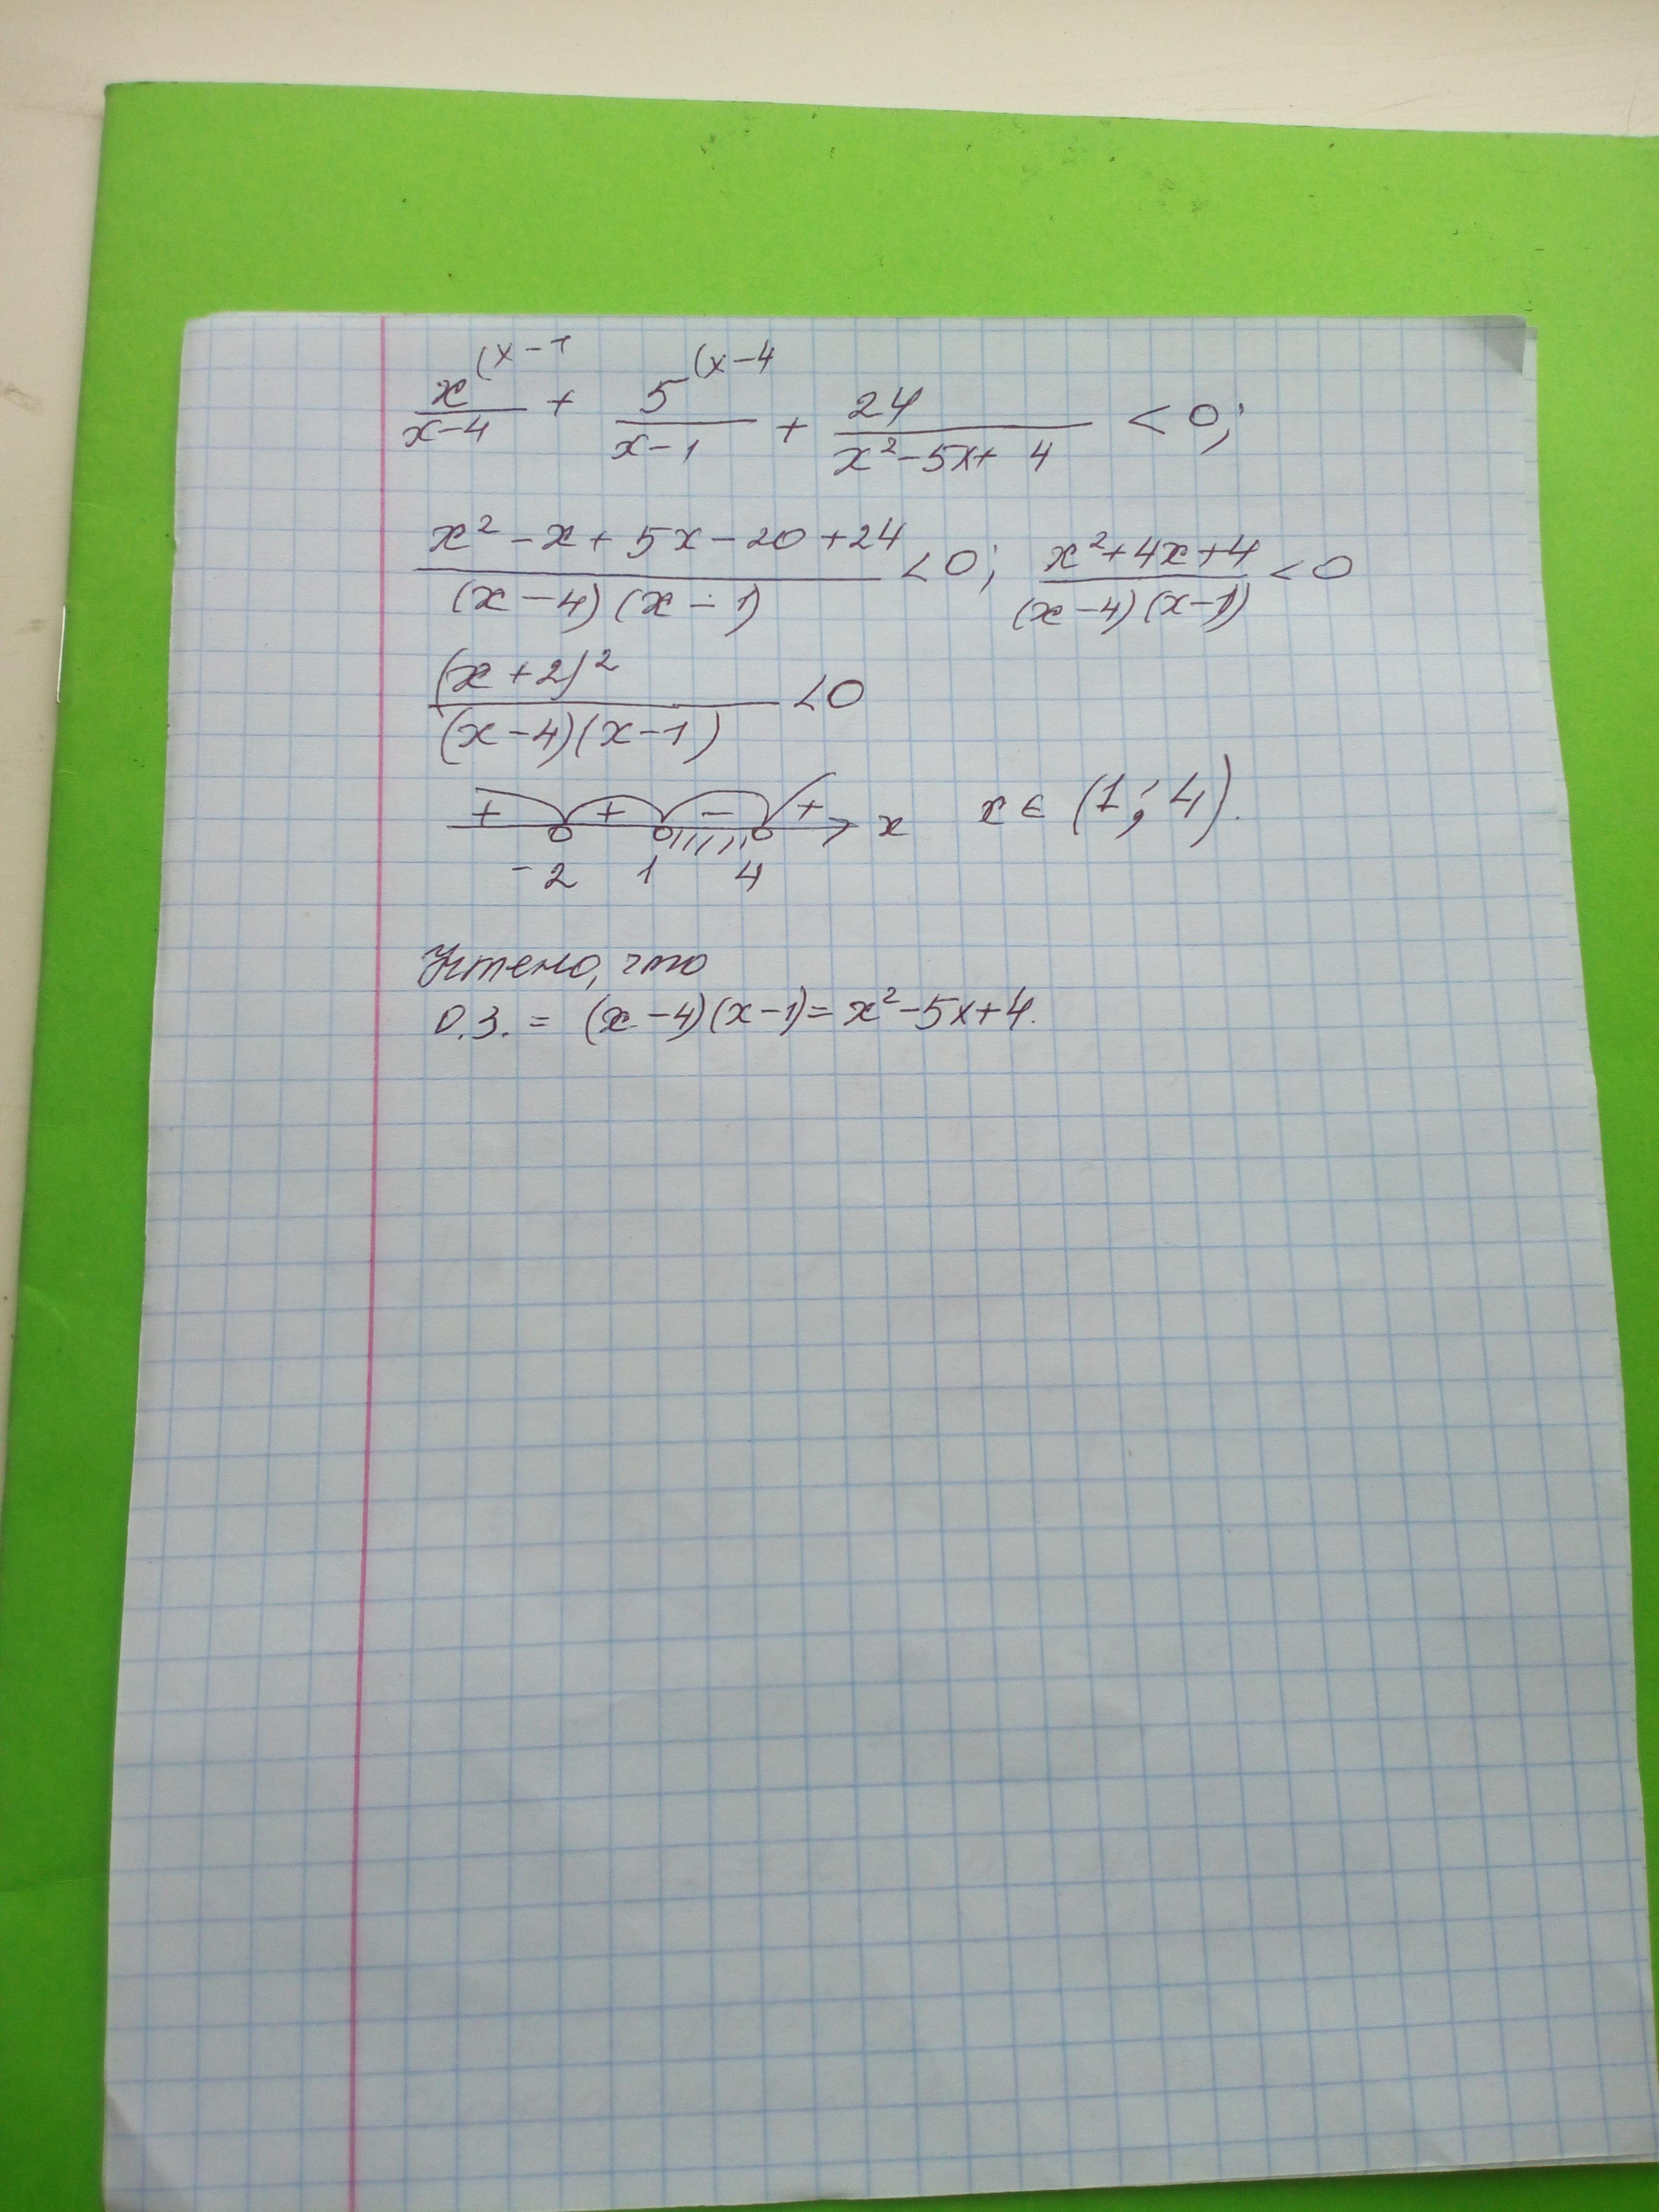 x^(x-1 / x-4 + 5^(x-4 / x-1 + 24 / x²-5x+ 4 < 0;
x² - x + 5x - 20 + 24 / (x-4)(x-1) < 0; x²+4x+4 / (x-4)(x-1) < 0
(x+2)² / (x-4)(x-1) < 0
+ + - + x x ∈ (1; 4).
-2 1 4
Учтено, что
О.З. = (x-4)(x-1) = x²-5x+4.